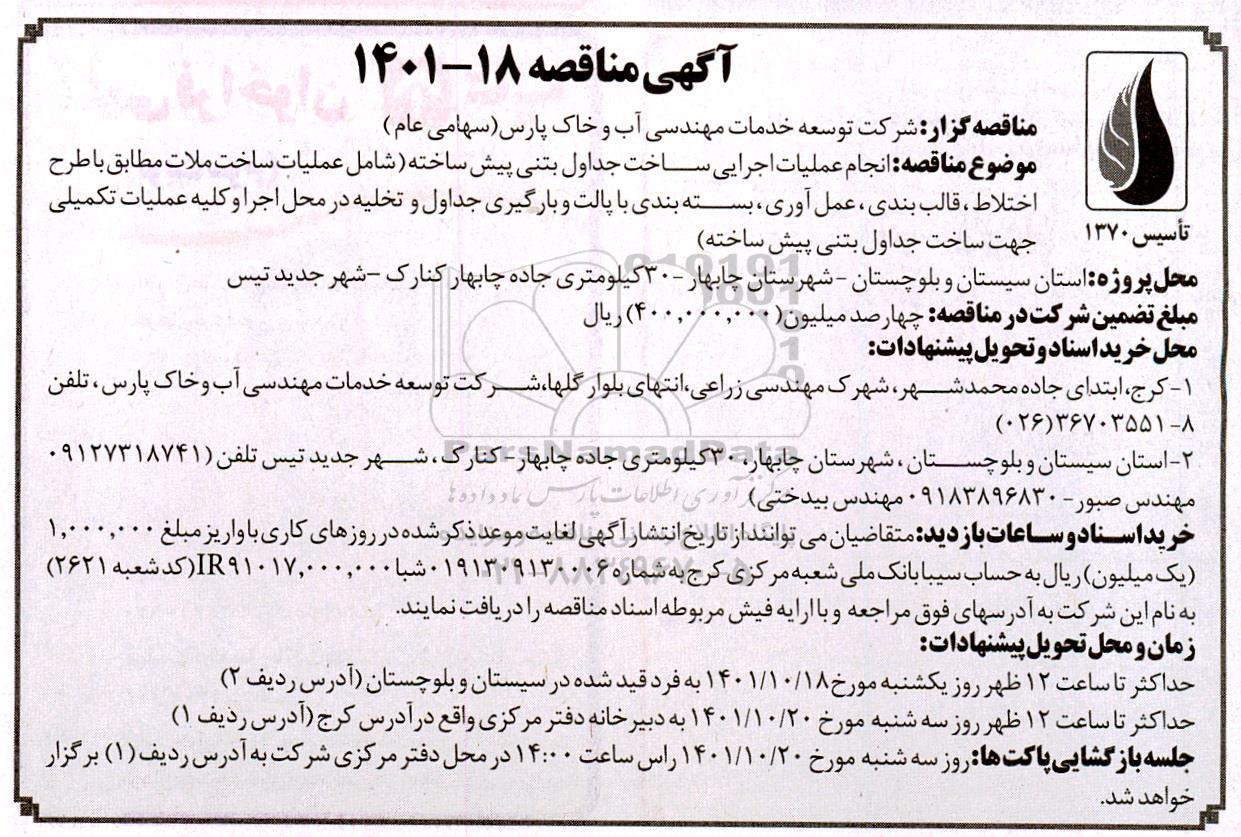 آگهی مناقصه ۱۸-۱۴۰۱
تأسیس ۱۳۷۰
مناقصه گزار: شرکت توسعه خدمات مهندسی آب و خاک پارس (سهامی عام)
موضوع مناقصه: انجام عملیات اجرایی ساخت جداول بتنی پیش ساخته (شامل عملیات ساخت ملات مطابق با طرح
اختلاط، قالب بندی، عمل آوری، بسته بندی با پالت و بارگیری جداول و تخلیه در محل اجرا و کلیه عملیات تکمیلی
جهت ساخت جداول بتنی پیش ساخته)
محل پروژه: استان سیستان و بلوچستان - شهرستان چابهار - ۳۰ کیلومتری جاده چابهار کنارک - شهر جدید تیس
مبلغ تضمین شرکت در مناقصه: چهارصد میلیون (۴۰۰,۰۰۰,۰۰۰) ریال
محل خرید اسناد و تحویل پیشنهادات:
۱- کرج، ابتدای جاده محمدشهر، شهرک مهندسی زراعی، انتهای بلوار گلها، شرکت توسعه خدمات مهندسی آب و خاک پارس، تلفن
۸-۳۶۷۰۳۵۵۱ (۰۲۶)
۲- استان سیستان و بلوچستان، شهرستان چابهار، ۳۰ کیلومتری جاده چابهار - کنارک، شهر جدید تیس تلفن (۰۹۱۲۷۳۱۸۷۴۱
مهندس صبور - ۰۹۱۸۳۸۹۶۸۳۰ مهندس بیدختی)
خرید اسناد و ساعات بازدید: متقاضیان می توانند از تاریخ انتشار آگهی لغایت موعد ذکر شده در روزهای کاری با واریز مبلغ ۱,۰۰۰,۰۰۰
(یک میلیون) ریال به حساب سیبا بانک ملی شعبه مرکزی کرج به شماره ۰۱۹۱۳۲۹۱۳۰۰۰۶ شبا IR۹۱۰۱۷,۰۰۰,۰۰۰ (کد شعبه ۲۶۲۱)
به نام این شرکت به آدرسهای فوق مراجعه و با ارایه فیش مربوطه اسناد مناقصه را دریافت نمایند.
زمان و محل تحویل پیشنهادات:
حداکثر تا ساعت ۱۲ ظهر روز یکشنبه مورخ ۱۴۰۱/۱۰/۱۸ به فرد قید شده در سیستان و بلوچستان (آدرس ردیف ۲)
حداکثر تا ساعت ۱۲ ظهر روز سه شنبه مورخ ۱۴۰۱/۱۰/۲۰ به دبیرخانه دفتر مرکزی واقع در آدرس کرج (آدرس ردیف ۱)
جلسه بازگشایی پاکت ها: روز سه شنبه مورخ ۱۴۰۱/۱۰/۲۰ راس ساعت ۱۴:۰۰ در محل دفتر مرکزی شرکت به آدرس ردیف (۱) برگزار
خواهد شد.
ParsNamadData